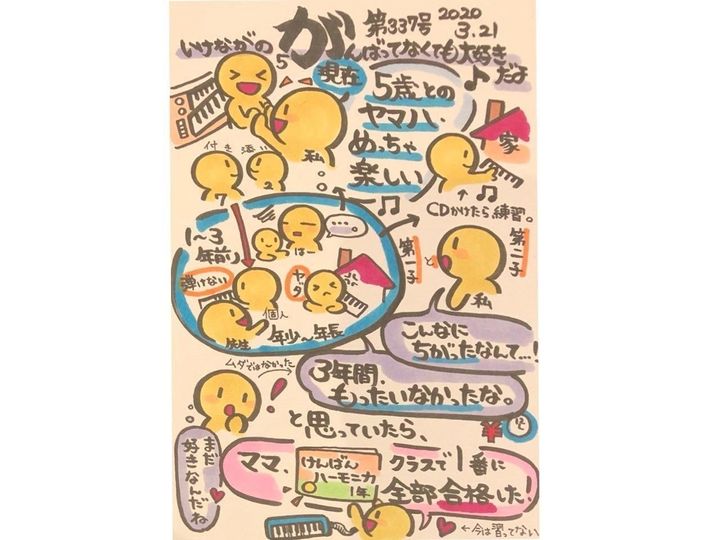 第337号 2020
3.21
いけながの がんばってなくても大好きだよ
5
現在
5歳との
ヤマハ、
めっちゃ
楽しい
私
付き添い
7
2
家
CDかけたら練習。
1〜3
年前
はー
弾けない
ヤダ
個人
先生
年少〜年長
第一子
と
第二子
私
こんなに
ちがったなんて…!
3年間、
もったいなかったな。
ムダではなかった
!
と思っていたら、
¥
まだ
好きなんだね
ママ、
けんばん
ハーモニカ
1年
クラスで1番に
全部合格した!
←今は習ってない